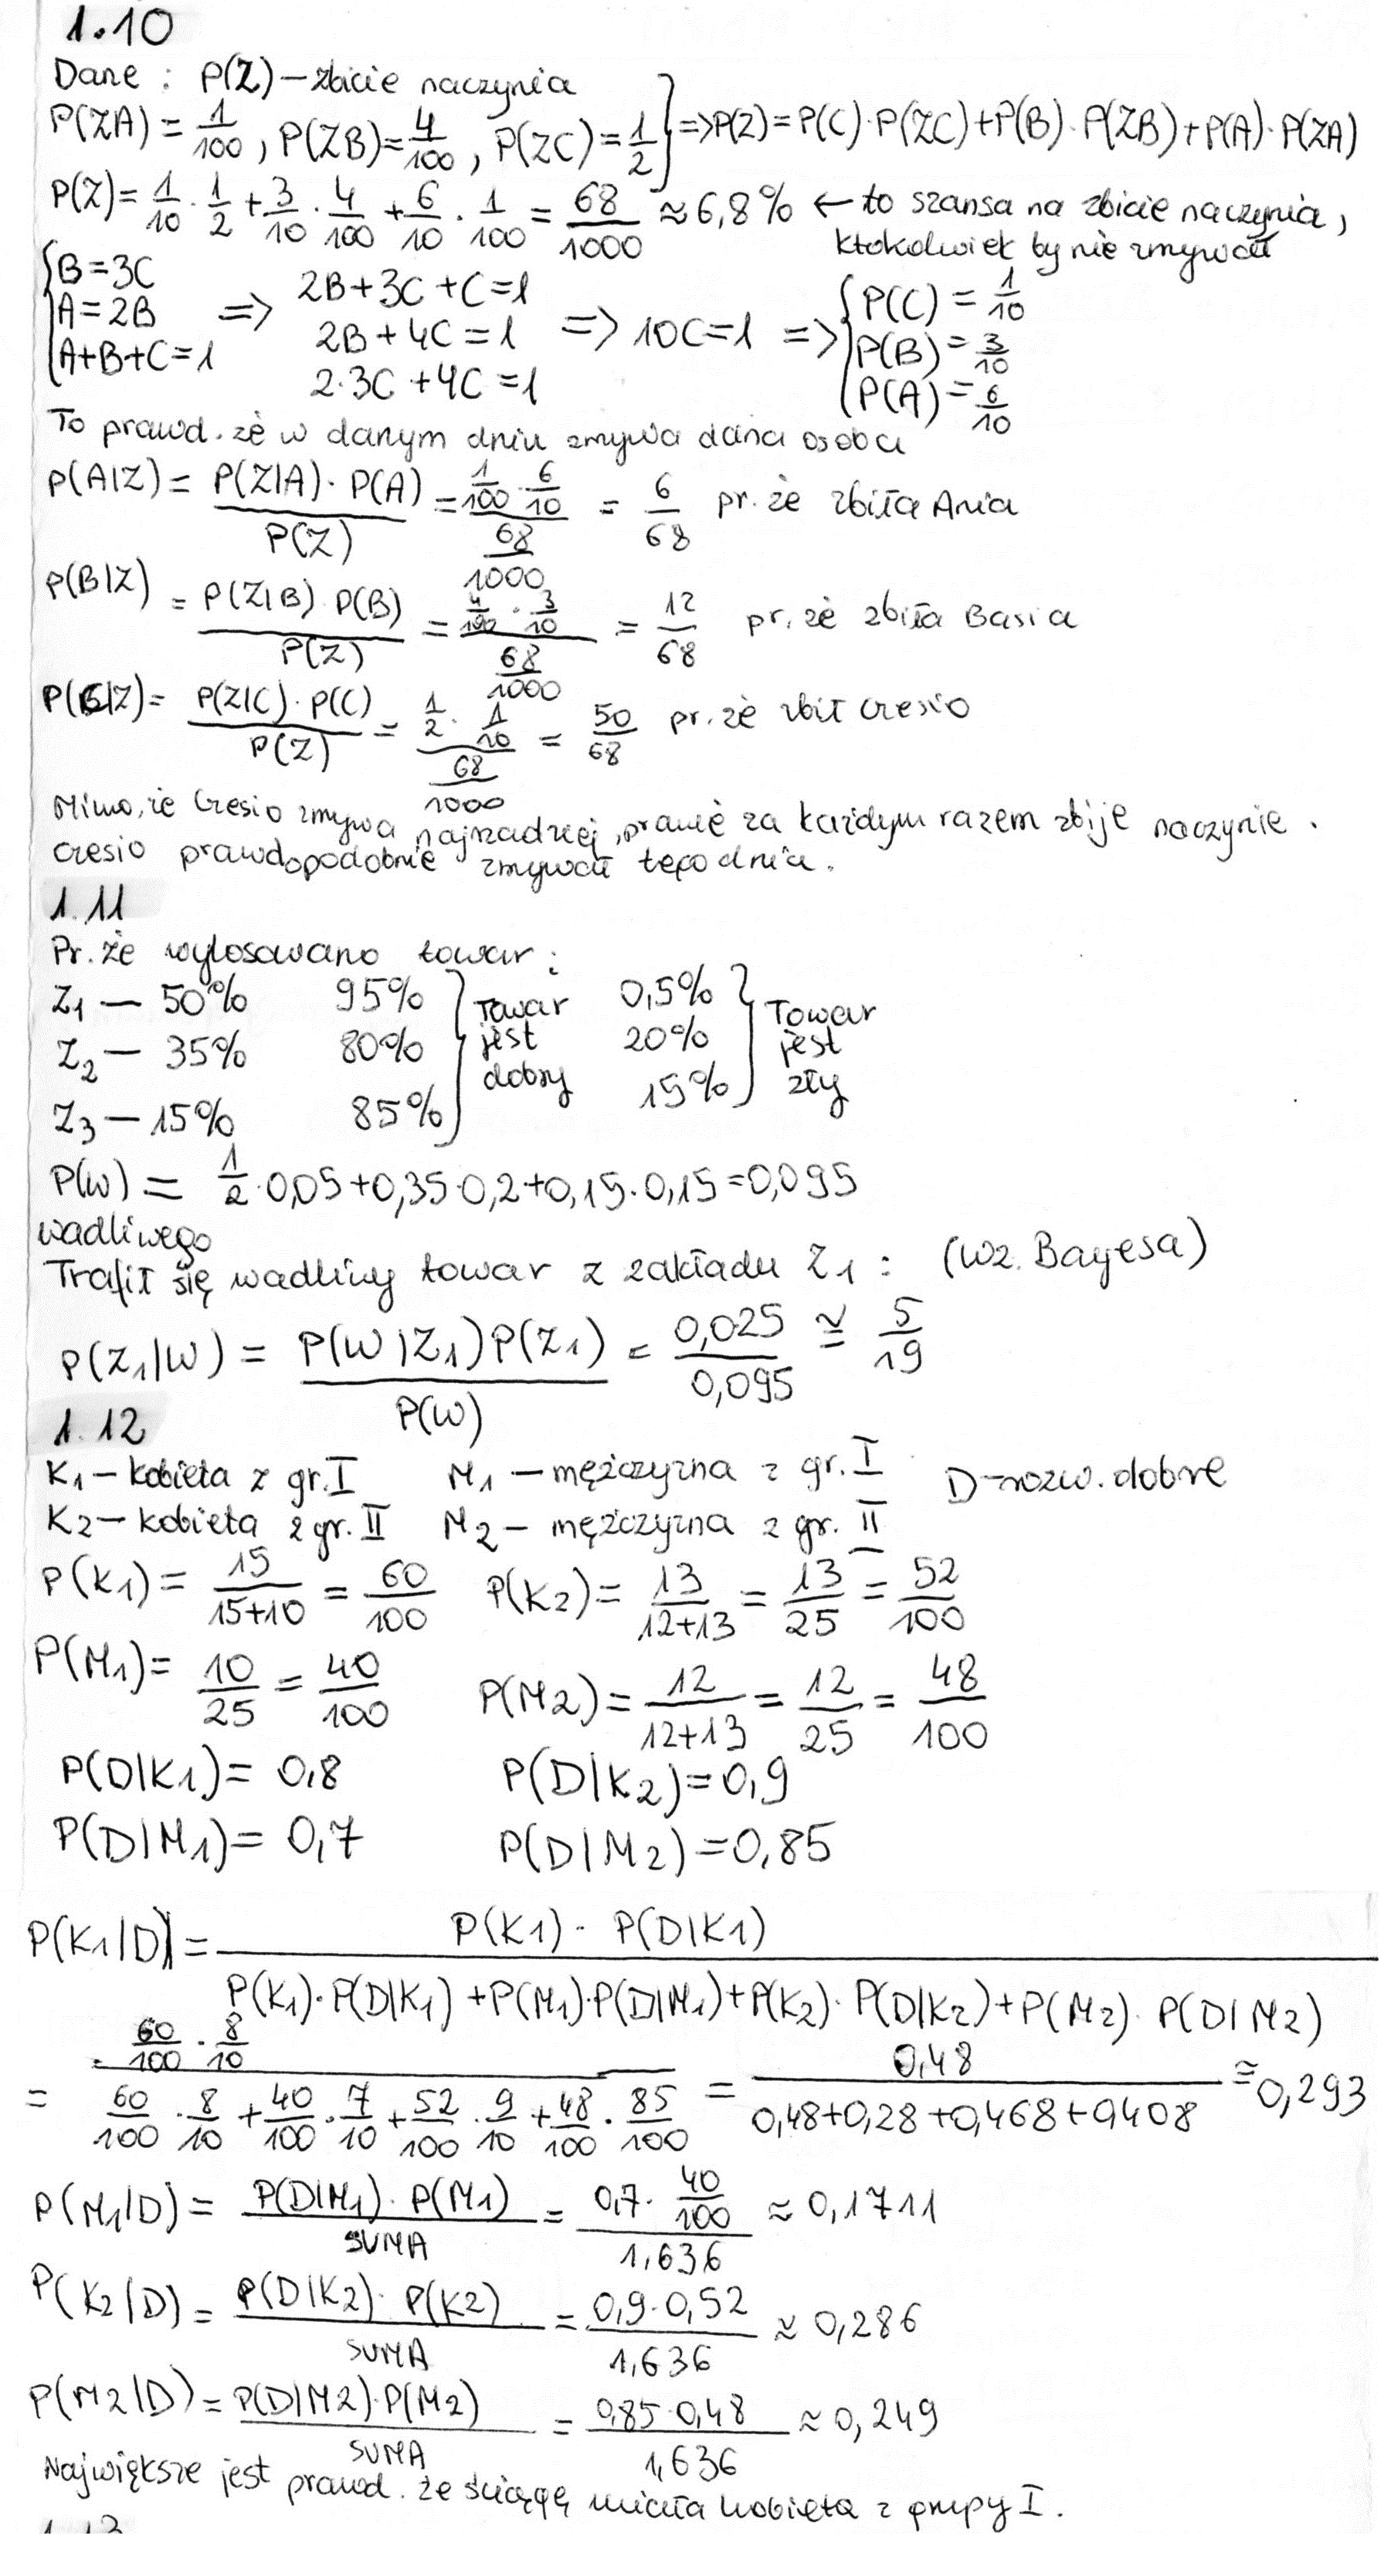 1.10
Dane : P(Z) – zbicie naczynia
P(ZA) = 1/100, P(ZB) = 4/100, P(ZC) = 1/2 } => P(Z) = P(C)·P(ZC) + P(B)·P(ZB) + P(A)·P(ZA)
P(Z) = 1/10 · 1/2 + 3/10 · 4/100 + 6/10 · 1/100 = 68/1000 ≈ 6,8% ← to szansa na zbicie naczynia,
ktokolwiek by nie zmywał
{ B = 3C
A = 2B
A+B+C = 1
=>
2B+3C+C=1
2B+4C=1
2·3C+4C=1
=> 10C=1 =>
{ P(C) = 1/10
P(B) = 3/10
P(A) = 6/10
To prawd. że w danym dniu zmywa dana osoba
P(A|Z) = P(Z|A)·P(A) / P(Z) = 1/100 · 6/10 / 68/1000 = 6/68 pr. że zbiła Ania
P(B|Z) = P(Z|B)·P(B) / P(Z) = 4/100 · 3/10 / 68/1000 = 12/68 pr. że zbiła Basia
P(C|Z) = P(Z|C)·P(C) / P(Z) = 1/2 · 1/10 / 68/1000 = 50/68 pr. że zbił Czesio
Mimo, że Czesio zmywa najrzadziej, prawie za każdym razem zbije naczynie.
Czesio prawdopodobnie zmywał tego dnia.
1.11
Pr. że wylosowano towar:
Z1 – 50% 95% } Towar 0,5% } Towar
Z2 – 35% 80% jest 20% jest
Z3 – 15% 85% dobry 15% zły
P(W) = 1/2·0,05+0,35·0,2+0,15·0,15=0,095
wadliwego
Trafił się wadliwy towar z zakładu Z1 : (wz. Bayesa)
P(Z1|W) = P(W|Z1)P(Z1) / P(W) = 0,025/0,095 ≅ 5/19
1.12
K1 – kobieta z gr. I M1 – mężczyzna z gr. I D – rozw. dobre
K2 – kobieta z gr. II M2 – mężczyzna z gr. II
P(K1) = 15/15+10 = 60/100 P(K2) = 13/12+13 = 13/25 = 52/100
P(M1) = 10/25 = 40/100 P(M2) = 12/12+13 = 12/25 = 48/100
P(D|K1) = 0,8 P(D|K2) = 0,9
P(D|M1) = 0,7 P(D|M2) = 0,85
P(K1|D) = P(K1)·P(D|K1) / P(K1)·P(D|K1) + P(M1)·P(D|M1) + P(K2)·P(D|K2) + P(M2)·P(D|M2)
= 60/100 · 8/10 / 60/100 · 8/10 + 40/100 · 7/10 + 52/100 · 9/10 + 48/100 · 85/100 = 0,48 / 0,48+0,28+0,468+0,408 ≅ 0,293
P(M1|D) = P(D|M1)·P(M1) / SUMA = 0,7 · 40/100 / 1,636 ≈ 0,1711
P(K2|D) = P(D|K2)·P(K2) / SUMA = 0,9·0,52 / 1,636 ≈ 0,286
P(M2|D) = P(D|M2)·P(M2) / SUMA = 0,85·0,48 / 1,636 ≈ 0,249
Największe jest prawd. że ściągę miała kobieta z grupy I.